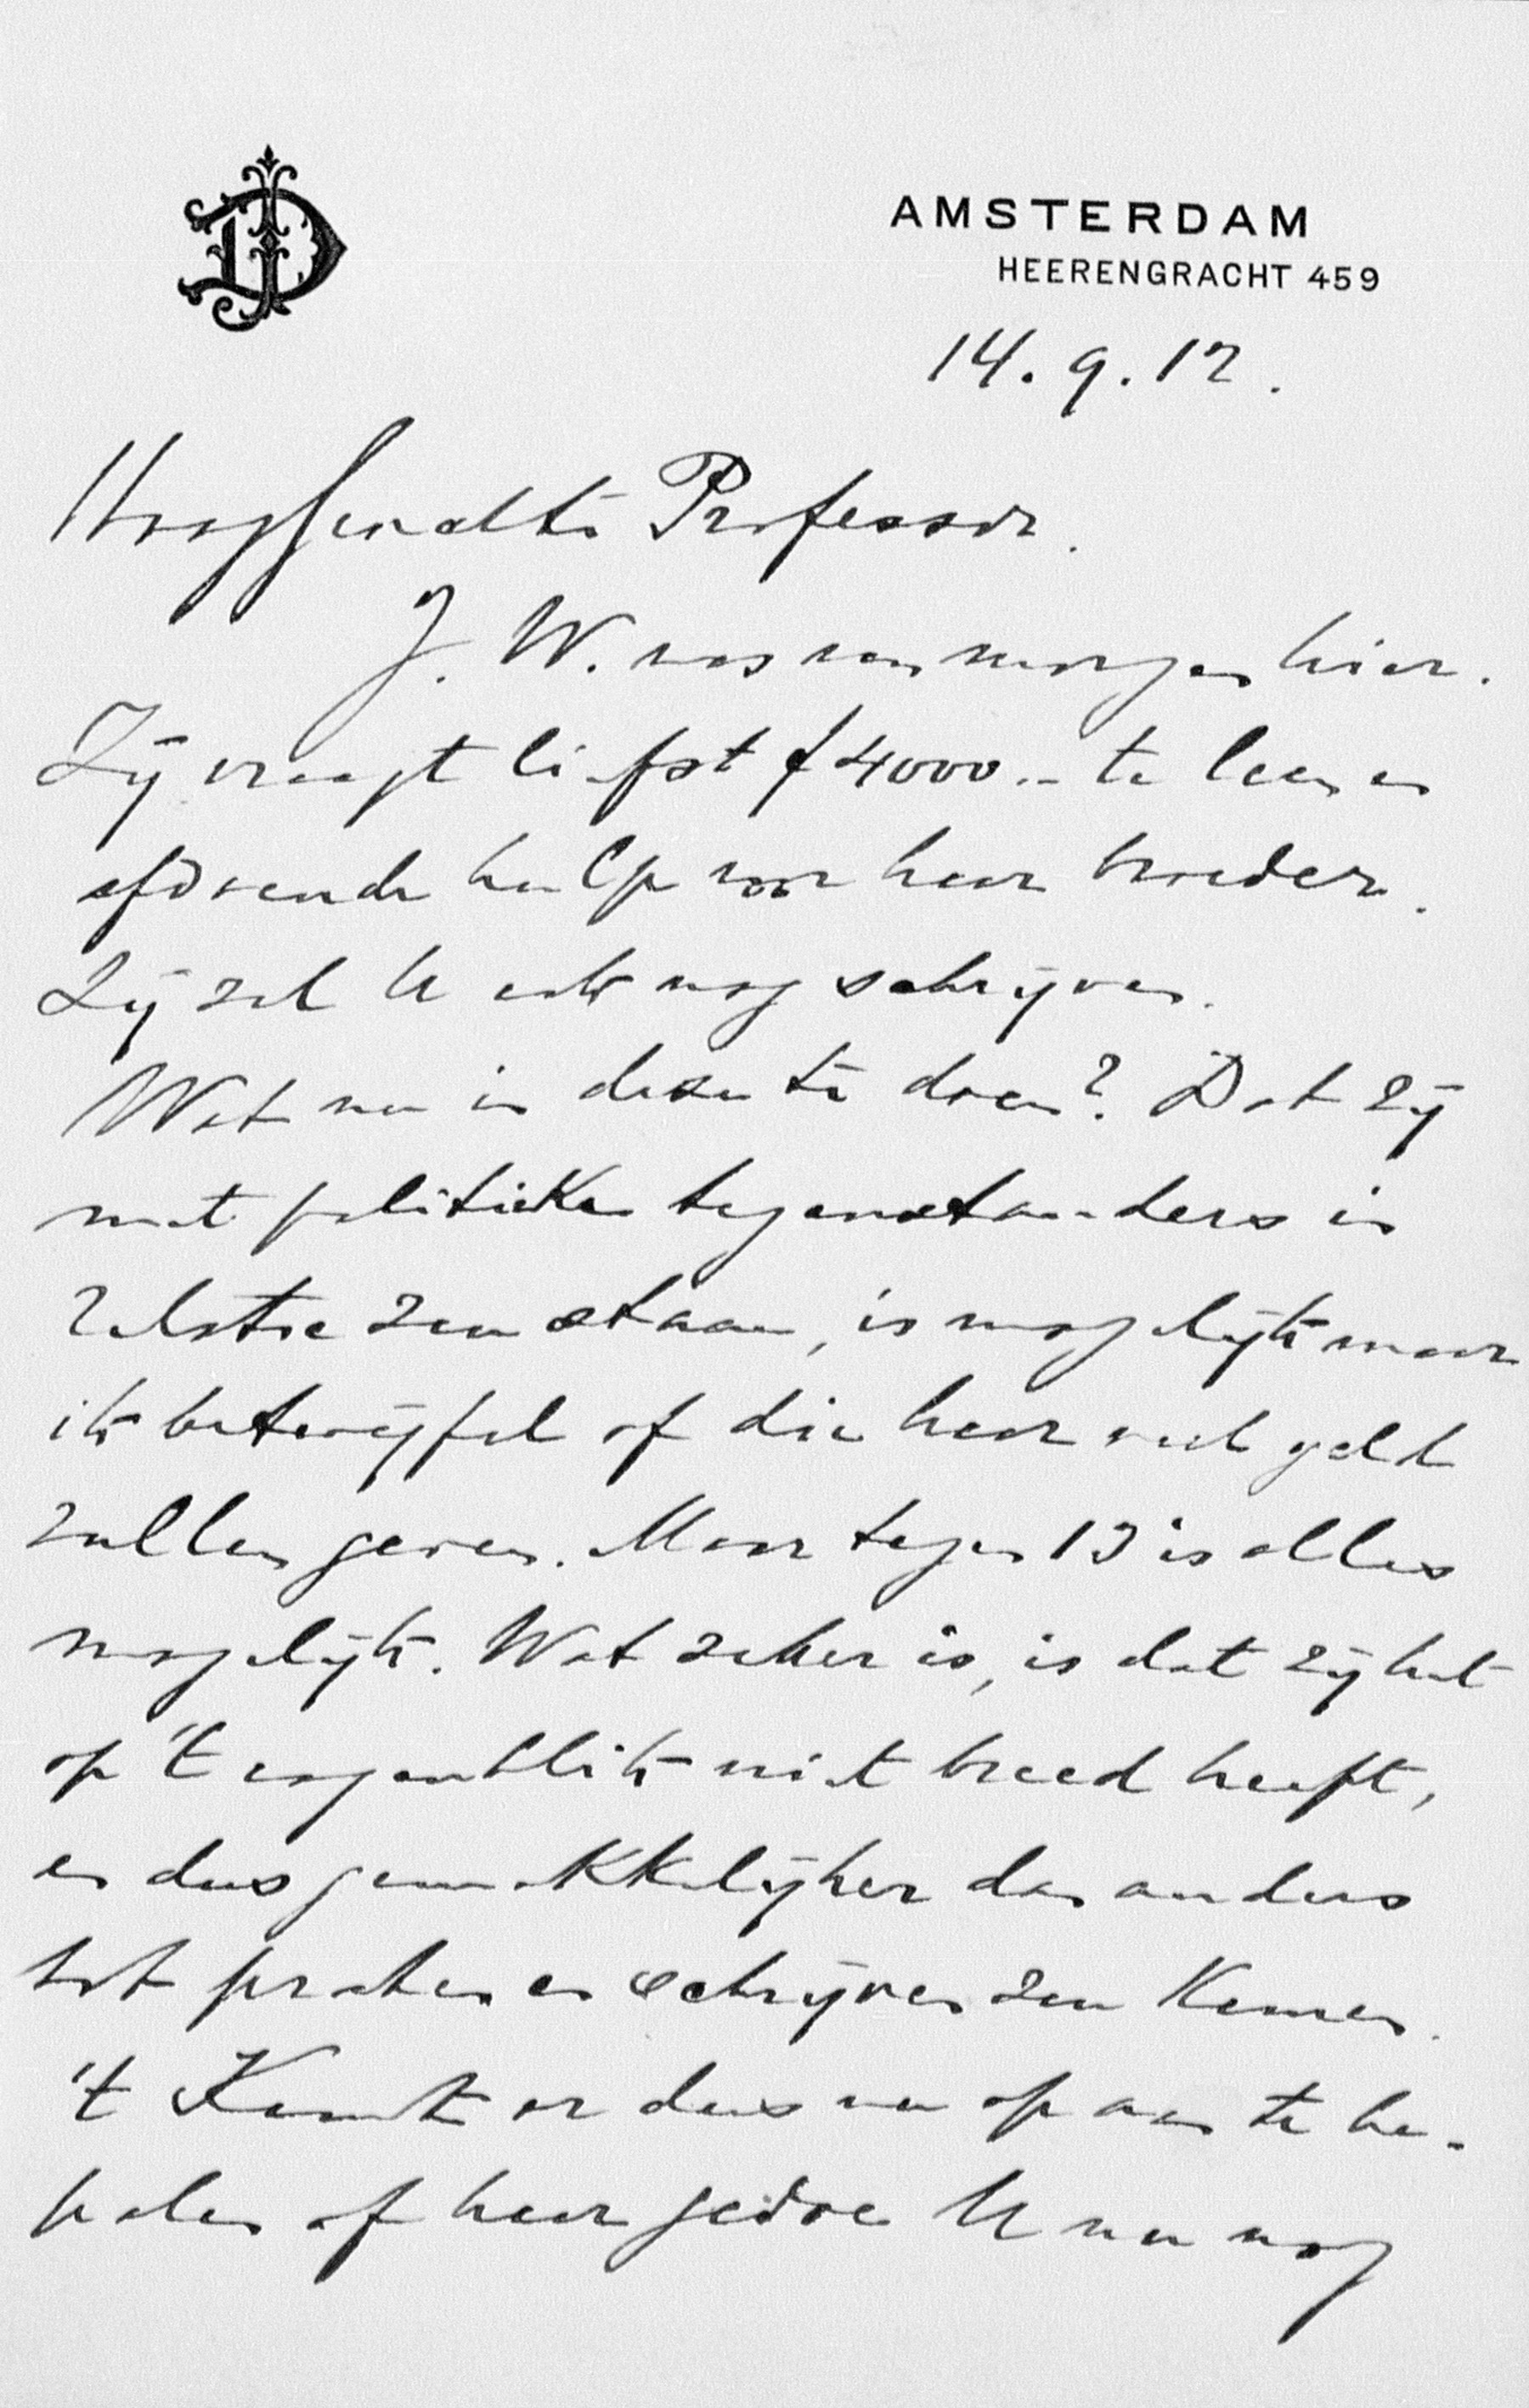 AMSTERDAM
HEERENGRACHT 459
14.9.12.
Hooggeachte Professor.
J. W. was van morgen hier.
Zij vraagt liefst f 4000.- te leen en
afdoende hulp voor haar broeder.
Zij zal U ook nog schrijven.
Wat nu in deze te doen? Dat zij
met politieke tegenstanders in
relatie zou staan, is mogelijk maar
ik betwijfel of die haar veel geld
zullen geven. Maar tegen 13 is alles
mogelijk. Wat zeker is, is dat zij het
op 't oogenblik niet breed heeft,
en dus gemakkelijker dan anders
tot praten en schrijven zou komen.
't Komt er dus nu op aan te be-
palen of haar gedoe U nu nog